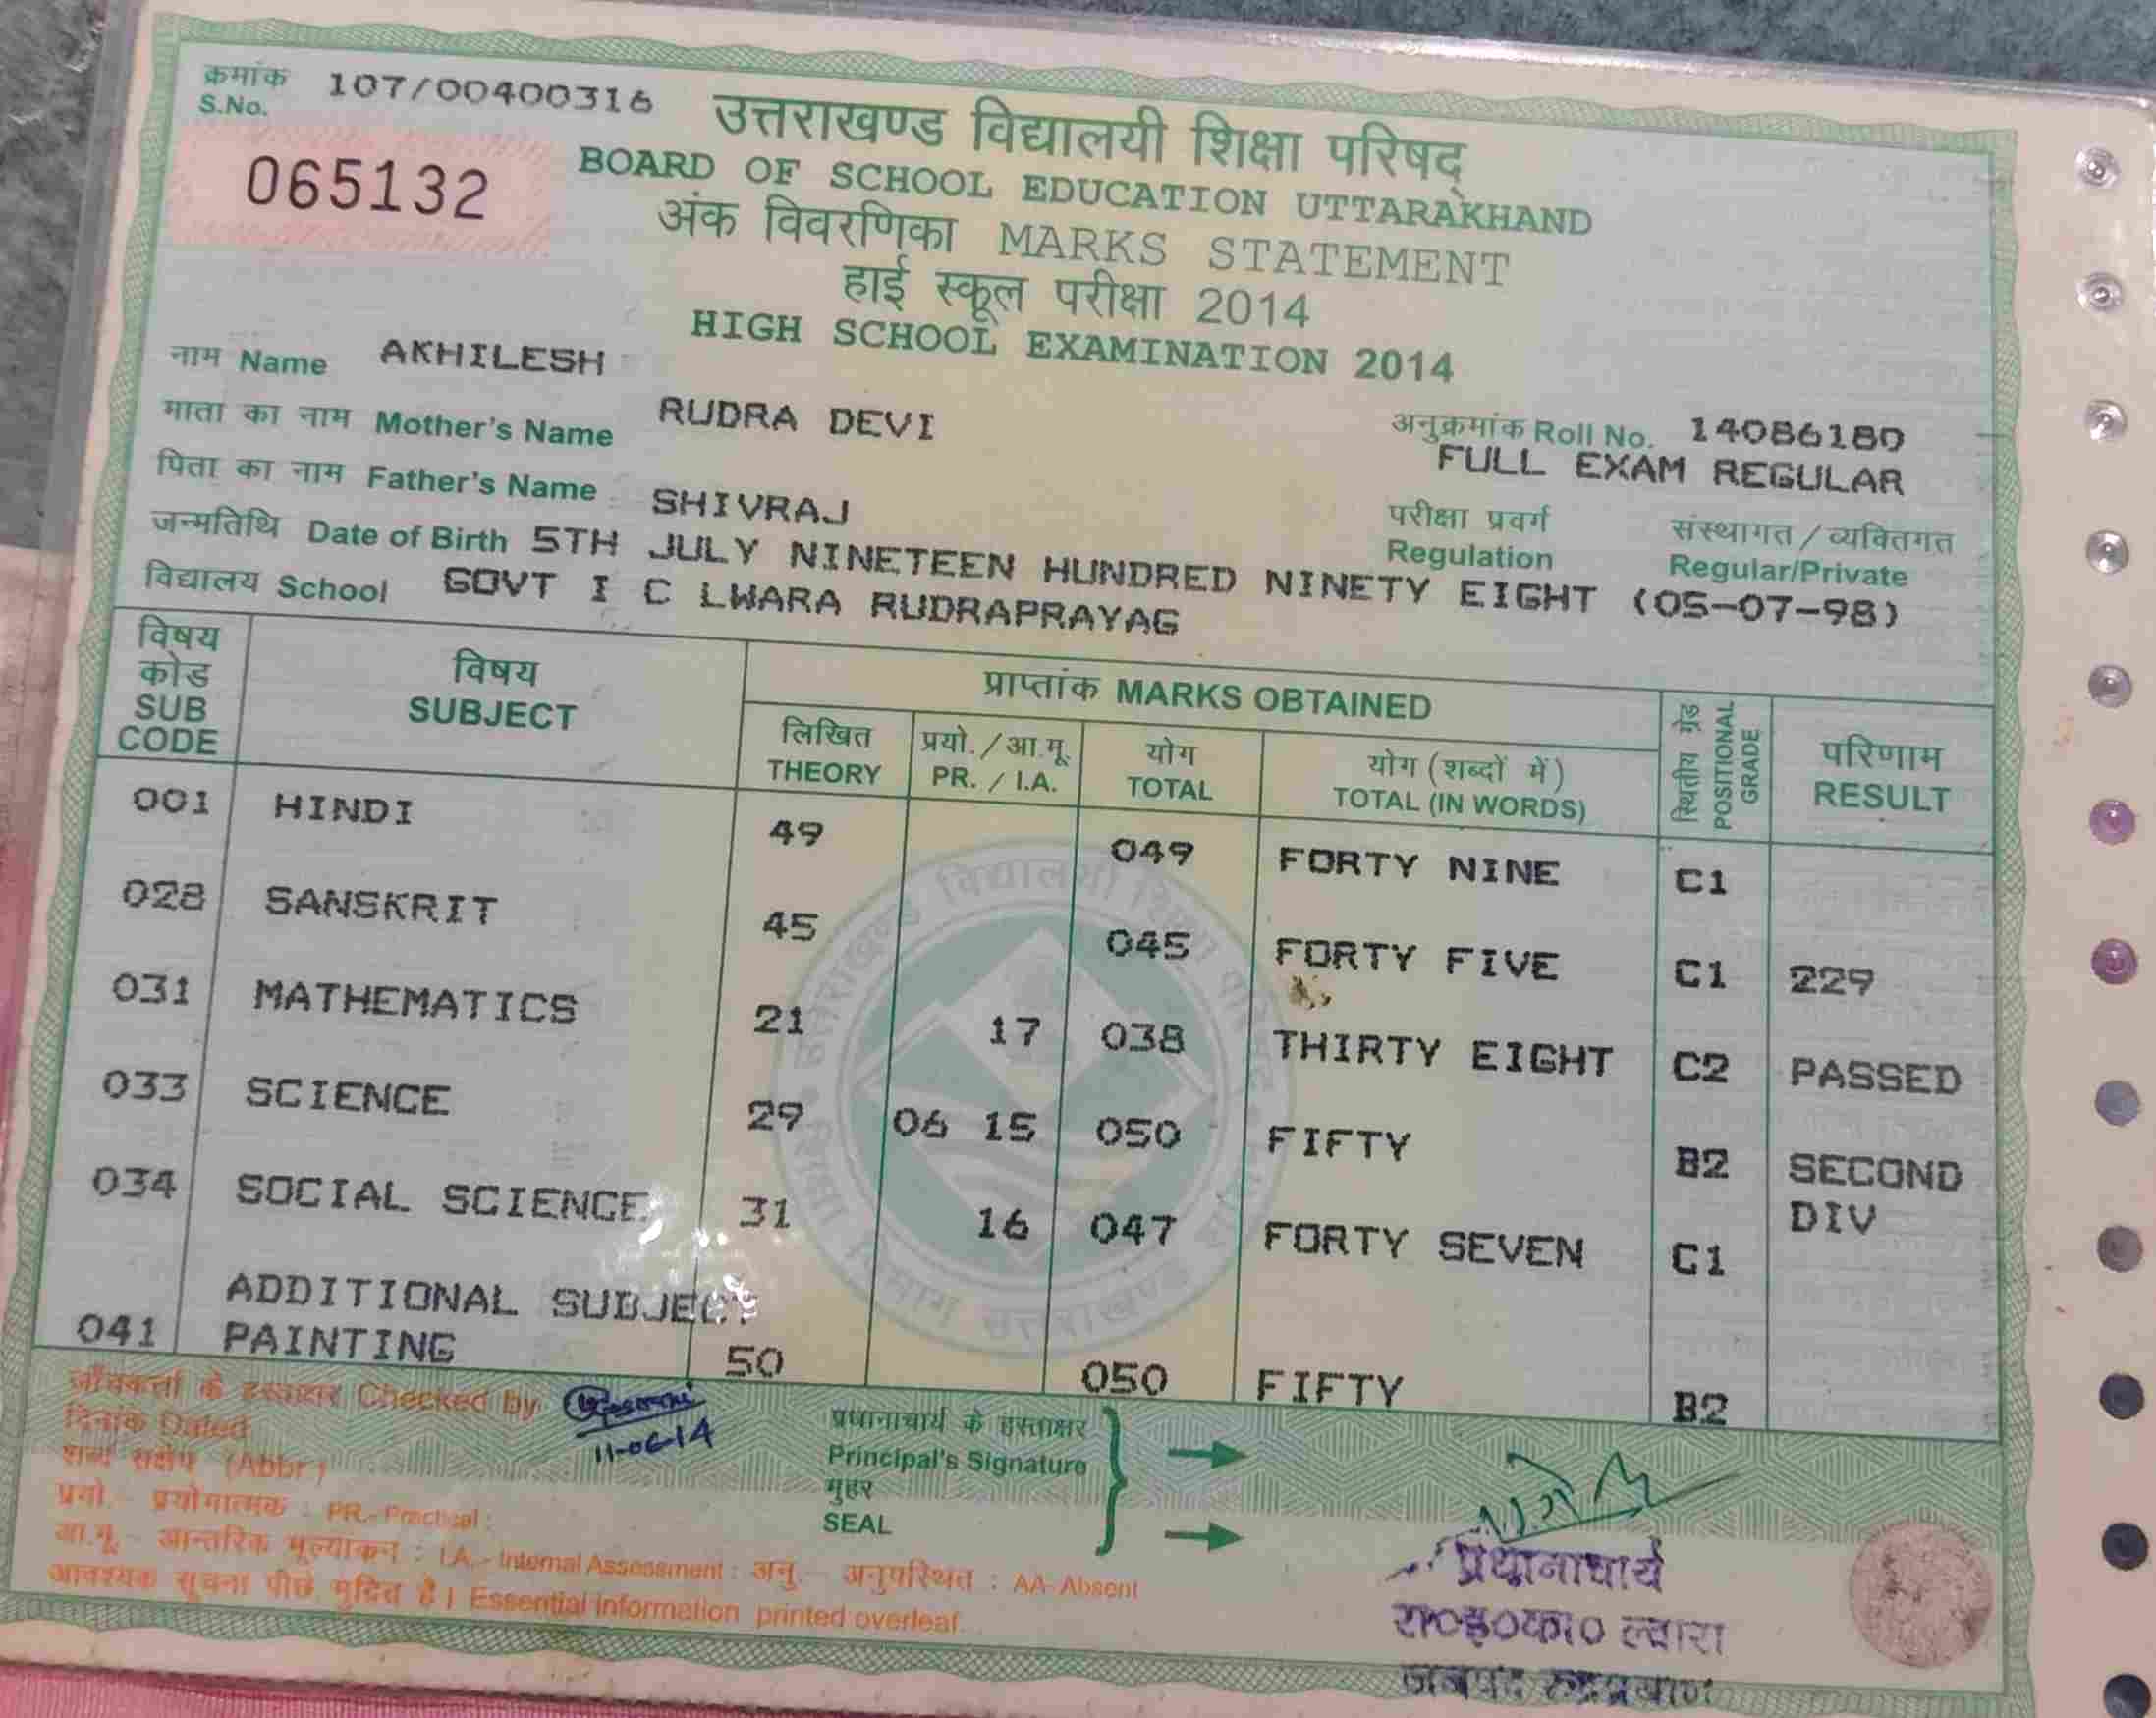 क्रमांक 107/00400316
S.No.
065132
उत्तराखण्ड विद्यालयी शिक्षा परिषद्
BOARD OF SCHOOL EDUCATION UTTARAKHAND
अंक विवरणिका MARKS STATEMENT
हाई स्कूल परीक्षा 2014
HIGH SCHOOL EXAMINATION 2014
नाम Name AKHILESH
माता का नाम Mother's Name RUDRA DEVI
अनुक्रमांक Roll No. 14086180
FULL EXAM REGULAR
पिता का नाम Father's Name SHIVRAJ
परीक्षा प्रवर्ग संस्थागत / व्यक्तिगत
Regulation Regular/Private
जन्मतिथि Date of Birth 5TH JULY NINETEEN HUNDRED NINETY EIGHT (05-07-98)
विद्यालय School GOVT I C LWARA RUDRAPRAYAG
विषय कोड SUB CODE
विषय SUBJECT
प्राप्तांक MARKS OBTAINED
लिखित THEORY
प्रयो. / आ.मू. PR. / I.A.
योग TOTAL
योग (शब्दों में) TOTAL (IN WORDS)
स्थितीय ग्रेड POSITIONAL GRADE
परिणाम RESULT
001 HINDI 49 049 FORTY NINE C1
028 SANSKRIT 45 045 FORTY FIVE C1 229
031 MATHEMATICS 21 17 038 THIRTY EIGHT C2 PASSED
033 SCIENCE 29 06 15 050 FIFTY B2 SECOND
DIV
034 SOCIAL SCIENCE 31 16 047 FORTY SEVEN C1
ADDITIONAL SUBJECT
041 PAINTING 50 050 FIFTY B2
जाँचकर्त्ता के हस्ताक्षर Checked by
दिनांक Dated 11-06-14
शब्द संक्षेप (Abbr.)
प्रयो.- प्रयोगात्मक : PR.- Practical :
आ.मू. - आन्तरिक मूल्यांकन : I.A.- Internal Assessment : अनु. - अनुपस्थित : AA-Absent
आवश्यक सूचना पीछे मुद्रित है। Essential Information printed overleaf.
प्रधानाचार्य के हस्ताक्षर
Principal's Signature
मुहर
SEAL
प्रधानाचार्य
रा०इ०का० ल्वारा
जनपद रुद्रप्रयाग